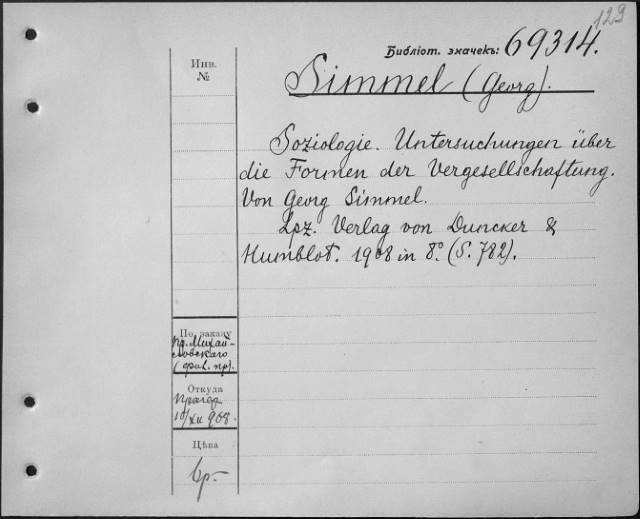 129
Библіот. значекъ: 69314.
Simmel (Georg).
Soziologie. Untersuchungen über
die Formen der Vergesellschaftung.
Von Georg Simmel.
Lpz. Verlag von Duncker &
Humblot. 1908 in 8° (S. 782).
Инв.
№
По заказу
Пр. Михай-
ловскаго
Откуда
10/XII 908.
Цѣна
6р.-